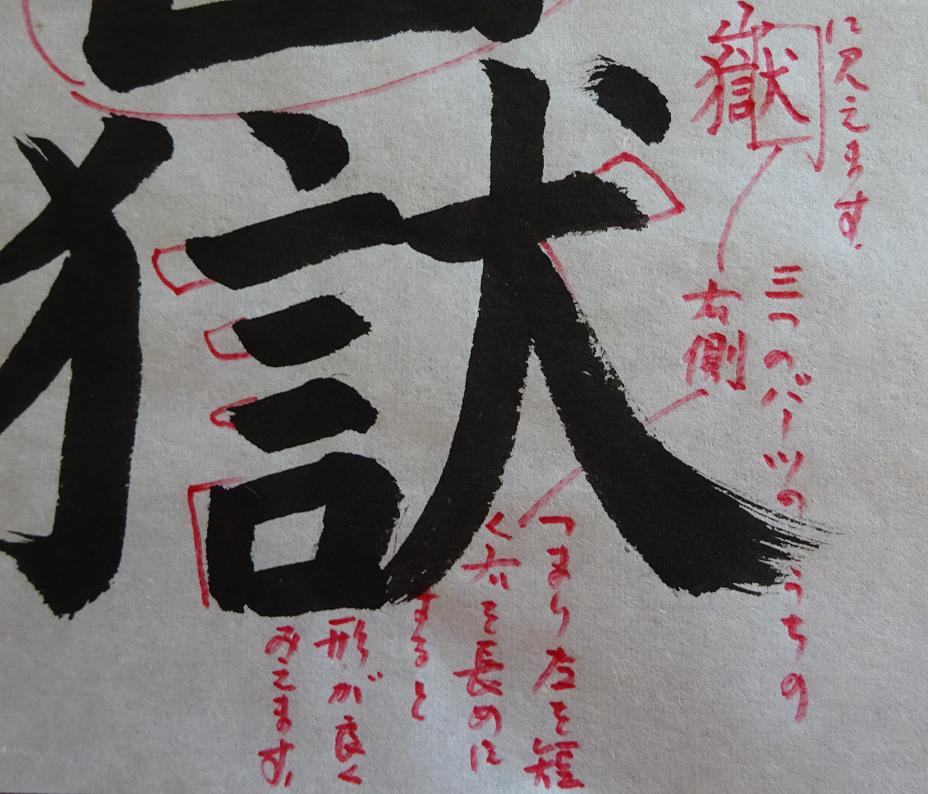 に見えます。
嶽
三つのパーツのうちの
右側
つまり左を短
く右を長めに
すると
形が良く
みえます。
嶽